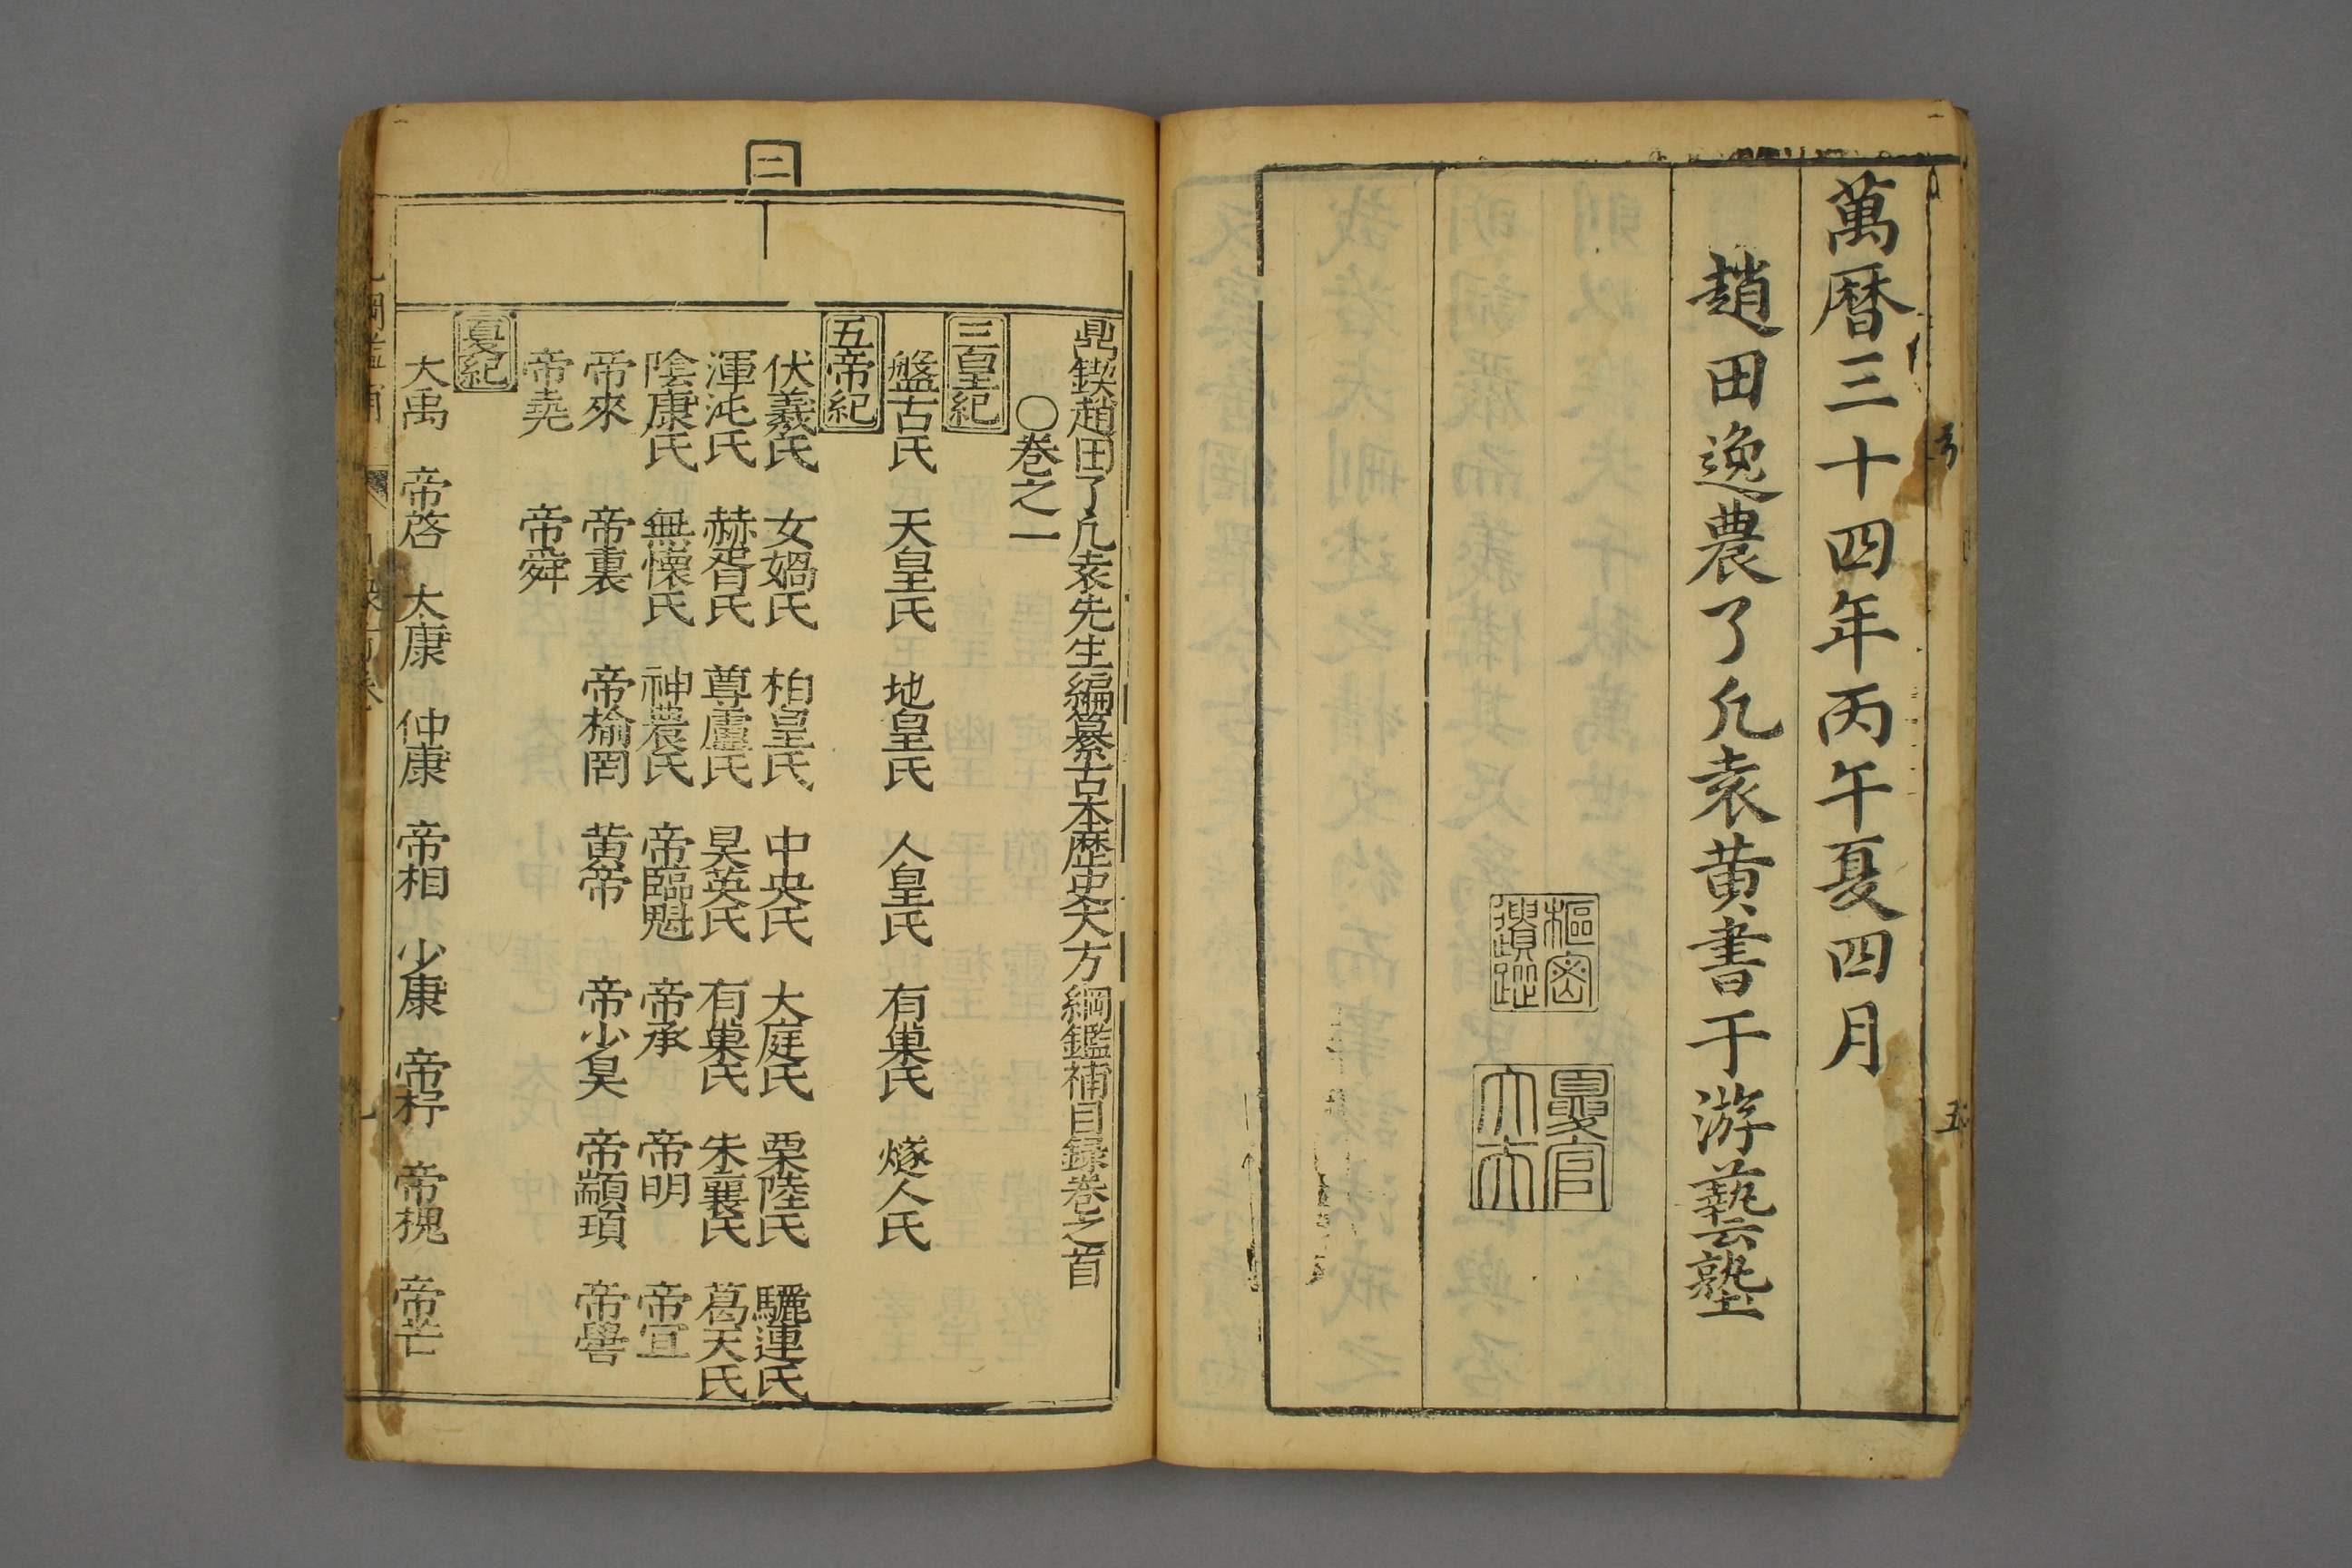 萬曆三十四年丙午夏四月
趙田逸農了凡袁黃書于游藝塾
樞密
遺蹤
夏官
大夫
二
鼎鍥趙田了凡袁先生編纂古本歷史大方綱鑑補目錄卷之首
〇卷之一
三皇紀
盤古氏 天皇氏 地皇氏 人皇氏 有巢氏 燧人氏
五帝紀
伏羲氏 女媧氏 柏皇氏 中央氏 大庭氏 栗陸氏 驪連氏
渾沌氏 赫胥氏 尊盧氏 昊英氏 有巢氏 朱襄氏 葛天氏
陰康氏 無懷氏 神農氏 帝臨魁 帝承 帝明 帝宜
帝來 帝裏 帝榆罔 黃帝 帝少昊 帝顓頊 帝嚳
帝堯 帝舜
夏紀
大禹 帝啓 太康 仲康 帝相 少康 帝杼 帝槐 帝芒